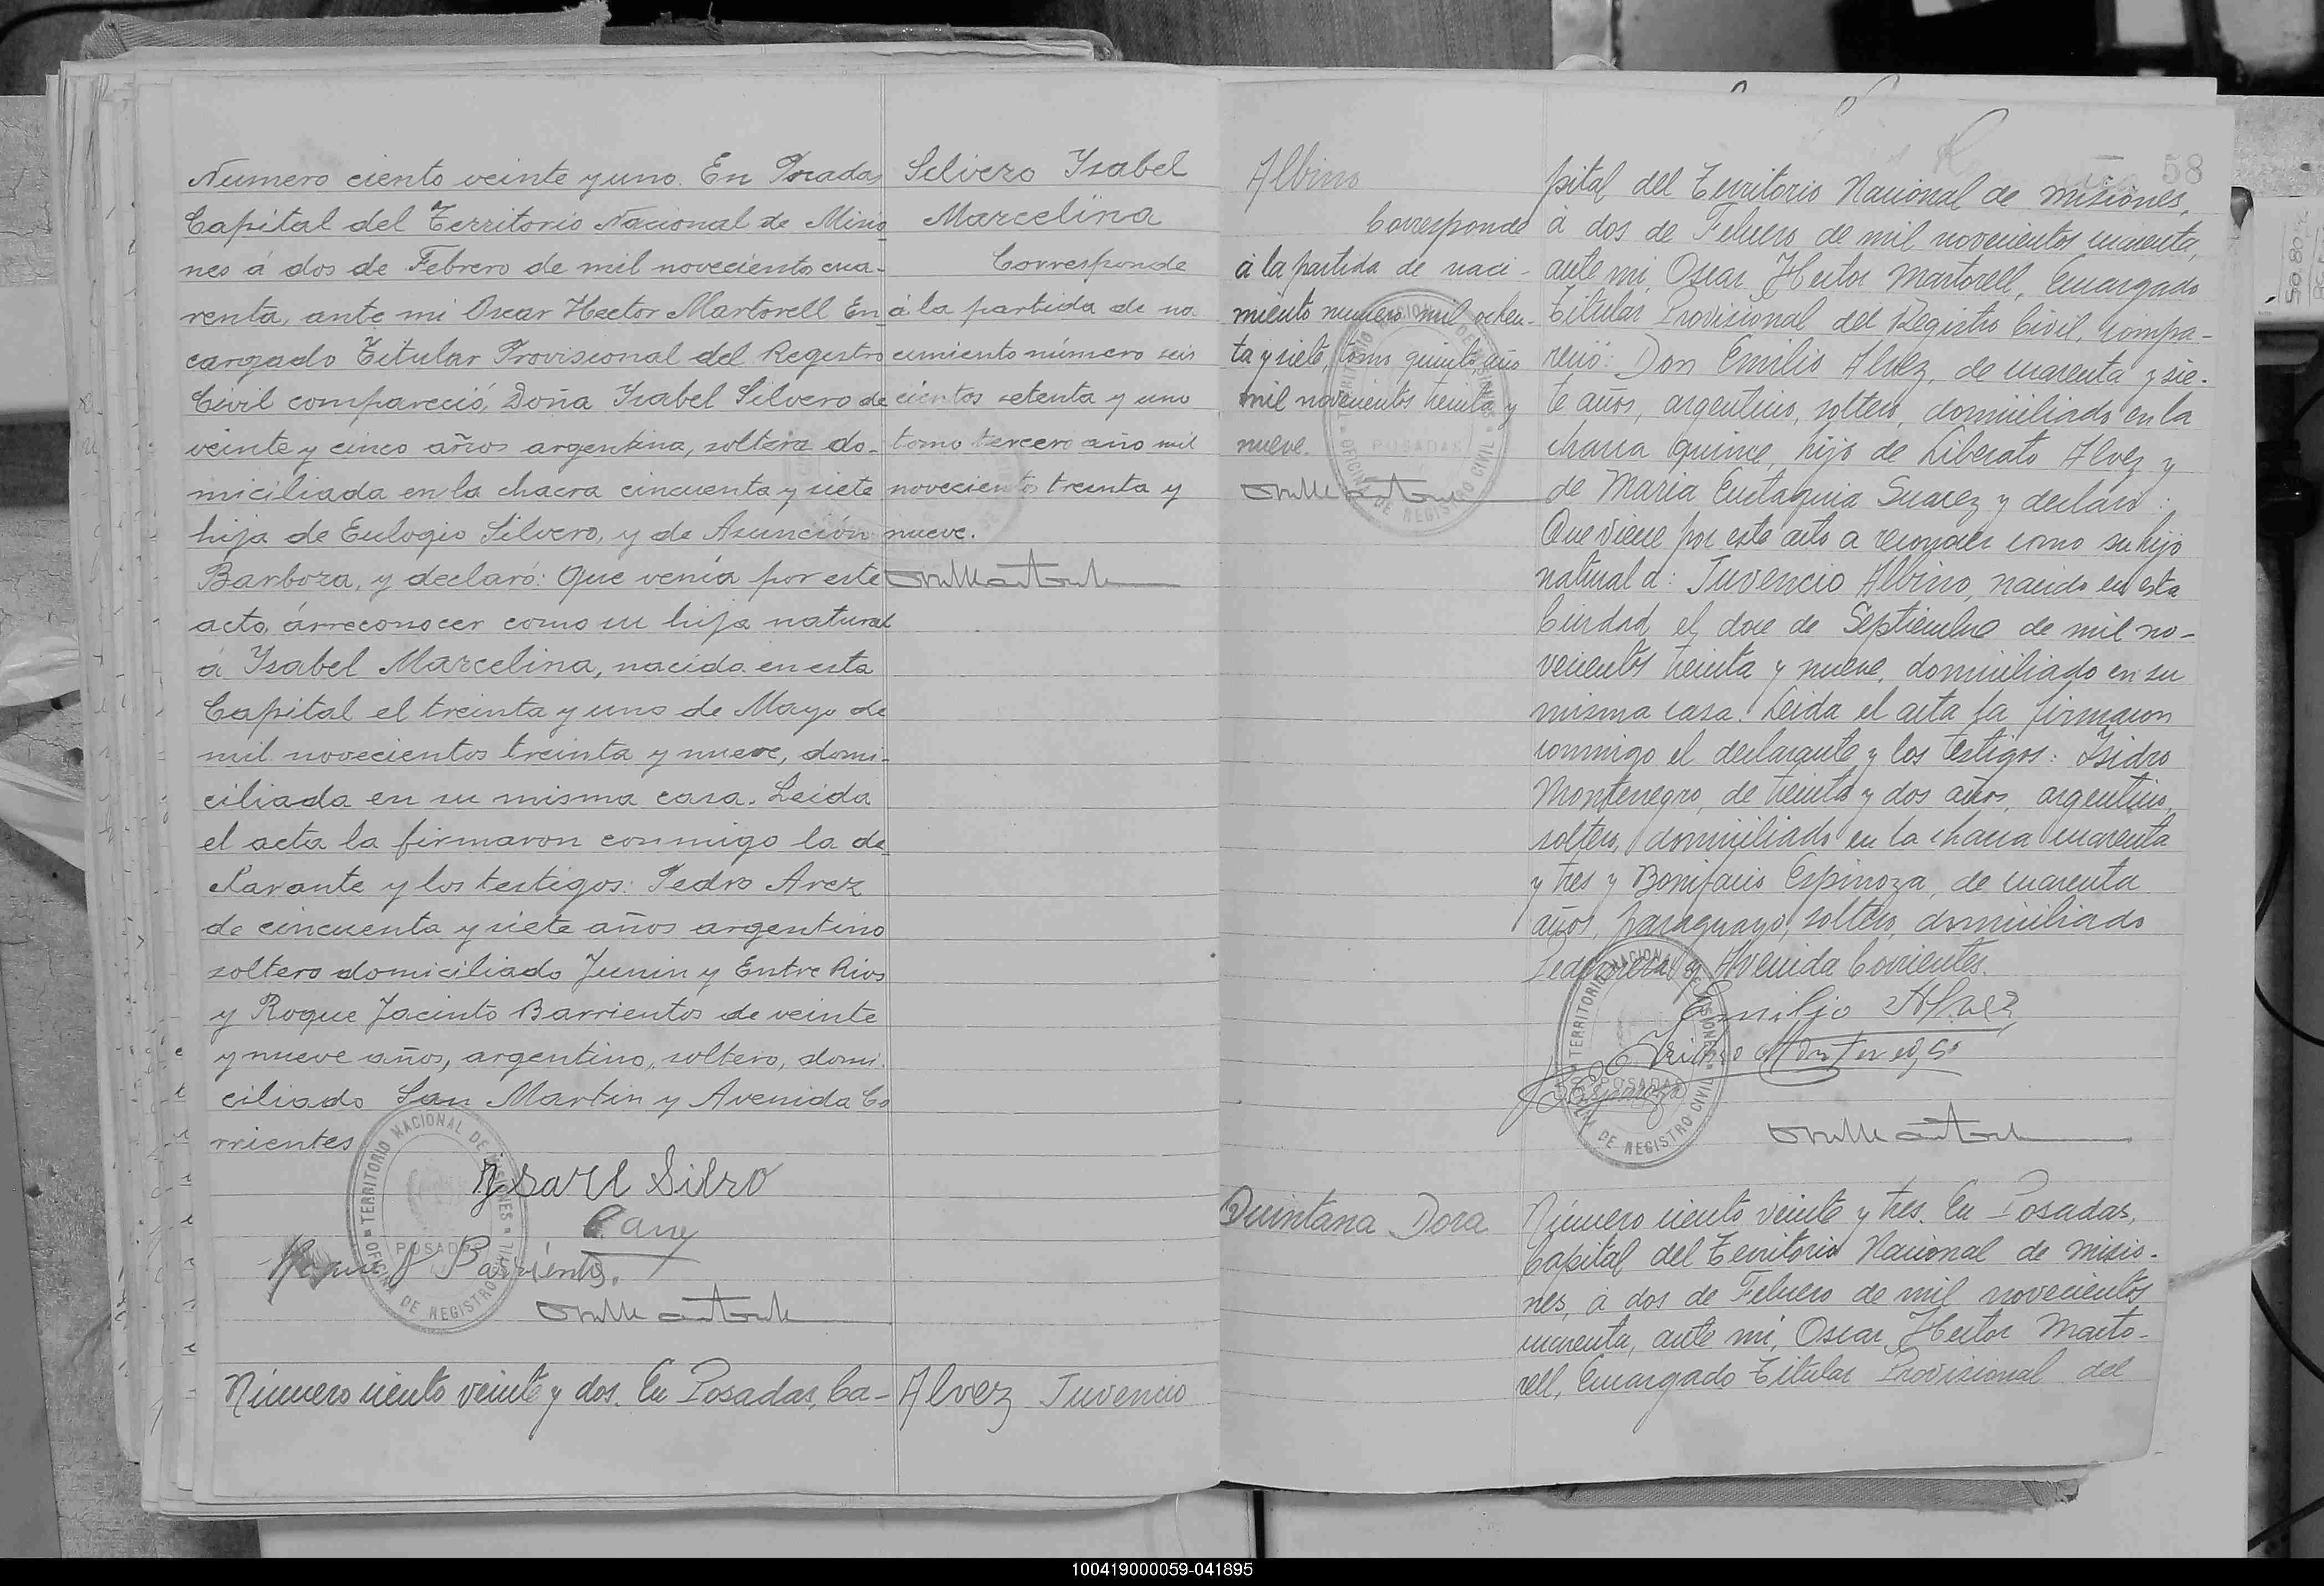 Numero ciento veinte y uno. En Posadas
Capital del Territorio Nacional de Misio
nes á dos de Febrero de mil noveciento cua-
renta, ante mi Oscar Hector Martorell En
cargado Titular Provisional del Registro
Civil compareció, Doña Isabel Silvero de
veinte y cinco años argentina, soltera do-
miciliada en la chacra cincuenta y siete
hija de Eulogio Silvero, y de Asunción
Barboza, y declaró: Que venía por este
acto, árreconocer como su hija natural
á Ysabel Marcelina, nacida en esta
Capital el treinta y uno de Mayo de
mil novecientos treinta y nueve, domi-
ciliada en su misma casa. Leida
el acta la firmaron conmigo la de
clarante y los testigos: Pedro Arez
de cincuenta y siete años argentino
soltero domiciliado Junin y Entre Rios
y Roque Jacinto Barrientos de veinte
y nueve años, argentino, soltero, domi-
ciliado San Martin y Avenida Co
rrientes
Silvero Ysabel
Marcelina
Corresponde
á la partida de na-
cimiento número seis
cientos setenta y uno
tomo tercero año mil
novecientos treinta y
nueve.
TERRITORIO NACIONAL DE MISIONES
POSADAS
OFICINA DE REGISTRO CIVIL
Ysabel Silvro
Barrientos.
Número ciento veinte y dos. En Posadas, Ca-
Alvez Juvencio
58
Albino
Corresponde
á la partida de naci-
miento numero mil ochen-
ta y siete, tomo quinto año
mil novecientos treinta y
nueve.
TERRITORIO NACIONAL DE MISIONES
POSADAS
OFICINA DE REGISTRO CIVIL
pital del Territorio Nacional de Misiones,
á dos de Febrero de mil novecientos cuarenta,
ante mi, Oscar Hector Martorell, Encargado
Titular Provisional del Registro Civil, compa-
reció: Don Emilio Alvez, de cuarenta y sie-
te años, argentino, soltero, domiciliado en la
chacra quince, hijo de Liberato Alvez y
de Maria Eustaquia Suarez y declaró:
Que viene por este acto a reconocer como su hijo
natural a: Juvencio Albino, nacido en esta
Ciudad, el doce de Septiembre de mil no-
vecientos treinta y nueve, domiciliado en su
misma casa. Leida el acta la firmaron
conmigo el declarante y los testigos: Isidro
Montenegro, de treinta y dos años, argentino,
soltero, domiciliado en la chacra cuarenta
y tres y Bonifacio Espinoza, de cuarenta
años, paraguayo, soltero, domiciliado
y Avenida Corrientes.
TERRITORIO NACIONAL DE MISIONES
POSADAS
OFICINA DE REGISTRO CIVIL
Emilio Alvez
Isidro Montenegro
Espinoza
Quintana Dora
Número ciento veinte y tres. En Posadas,
Capital del Territorio Nacional de Misio-
nes, a dos de Febrero de mil novecientos
cuarenta, ante mi, Oscar Hector Marto-
rell, Encargado Titular Provisional del
100419000059-041895